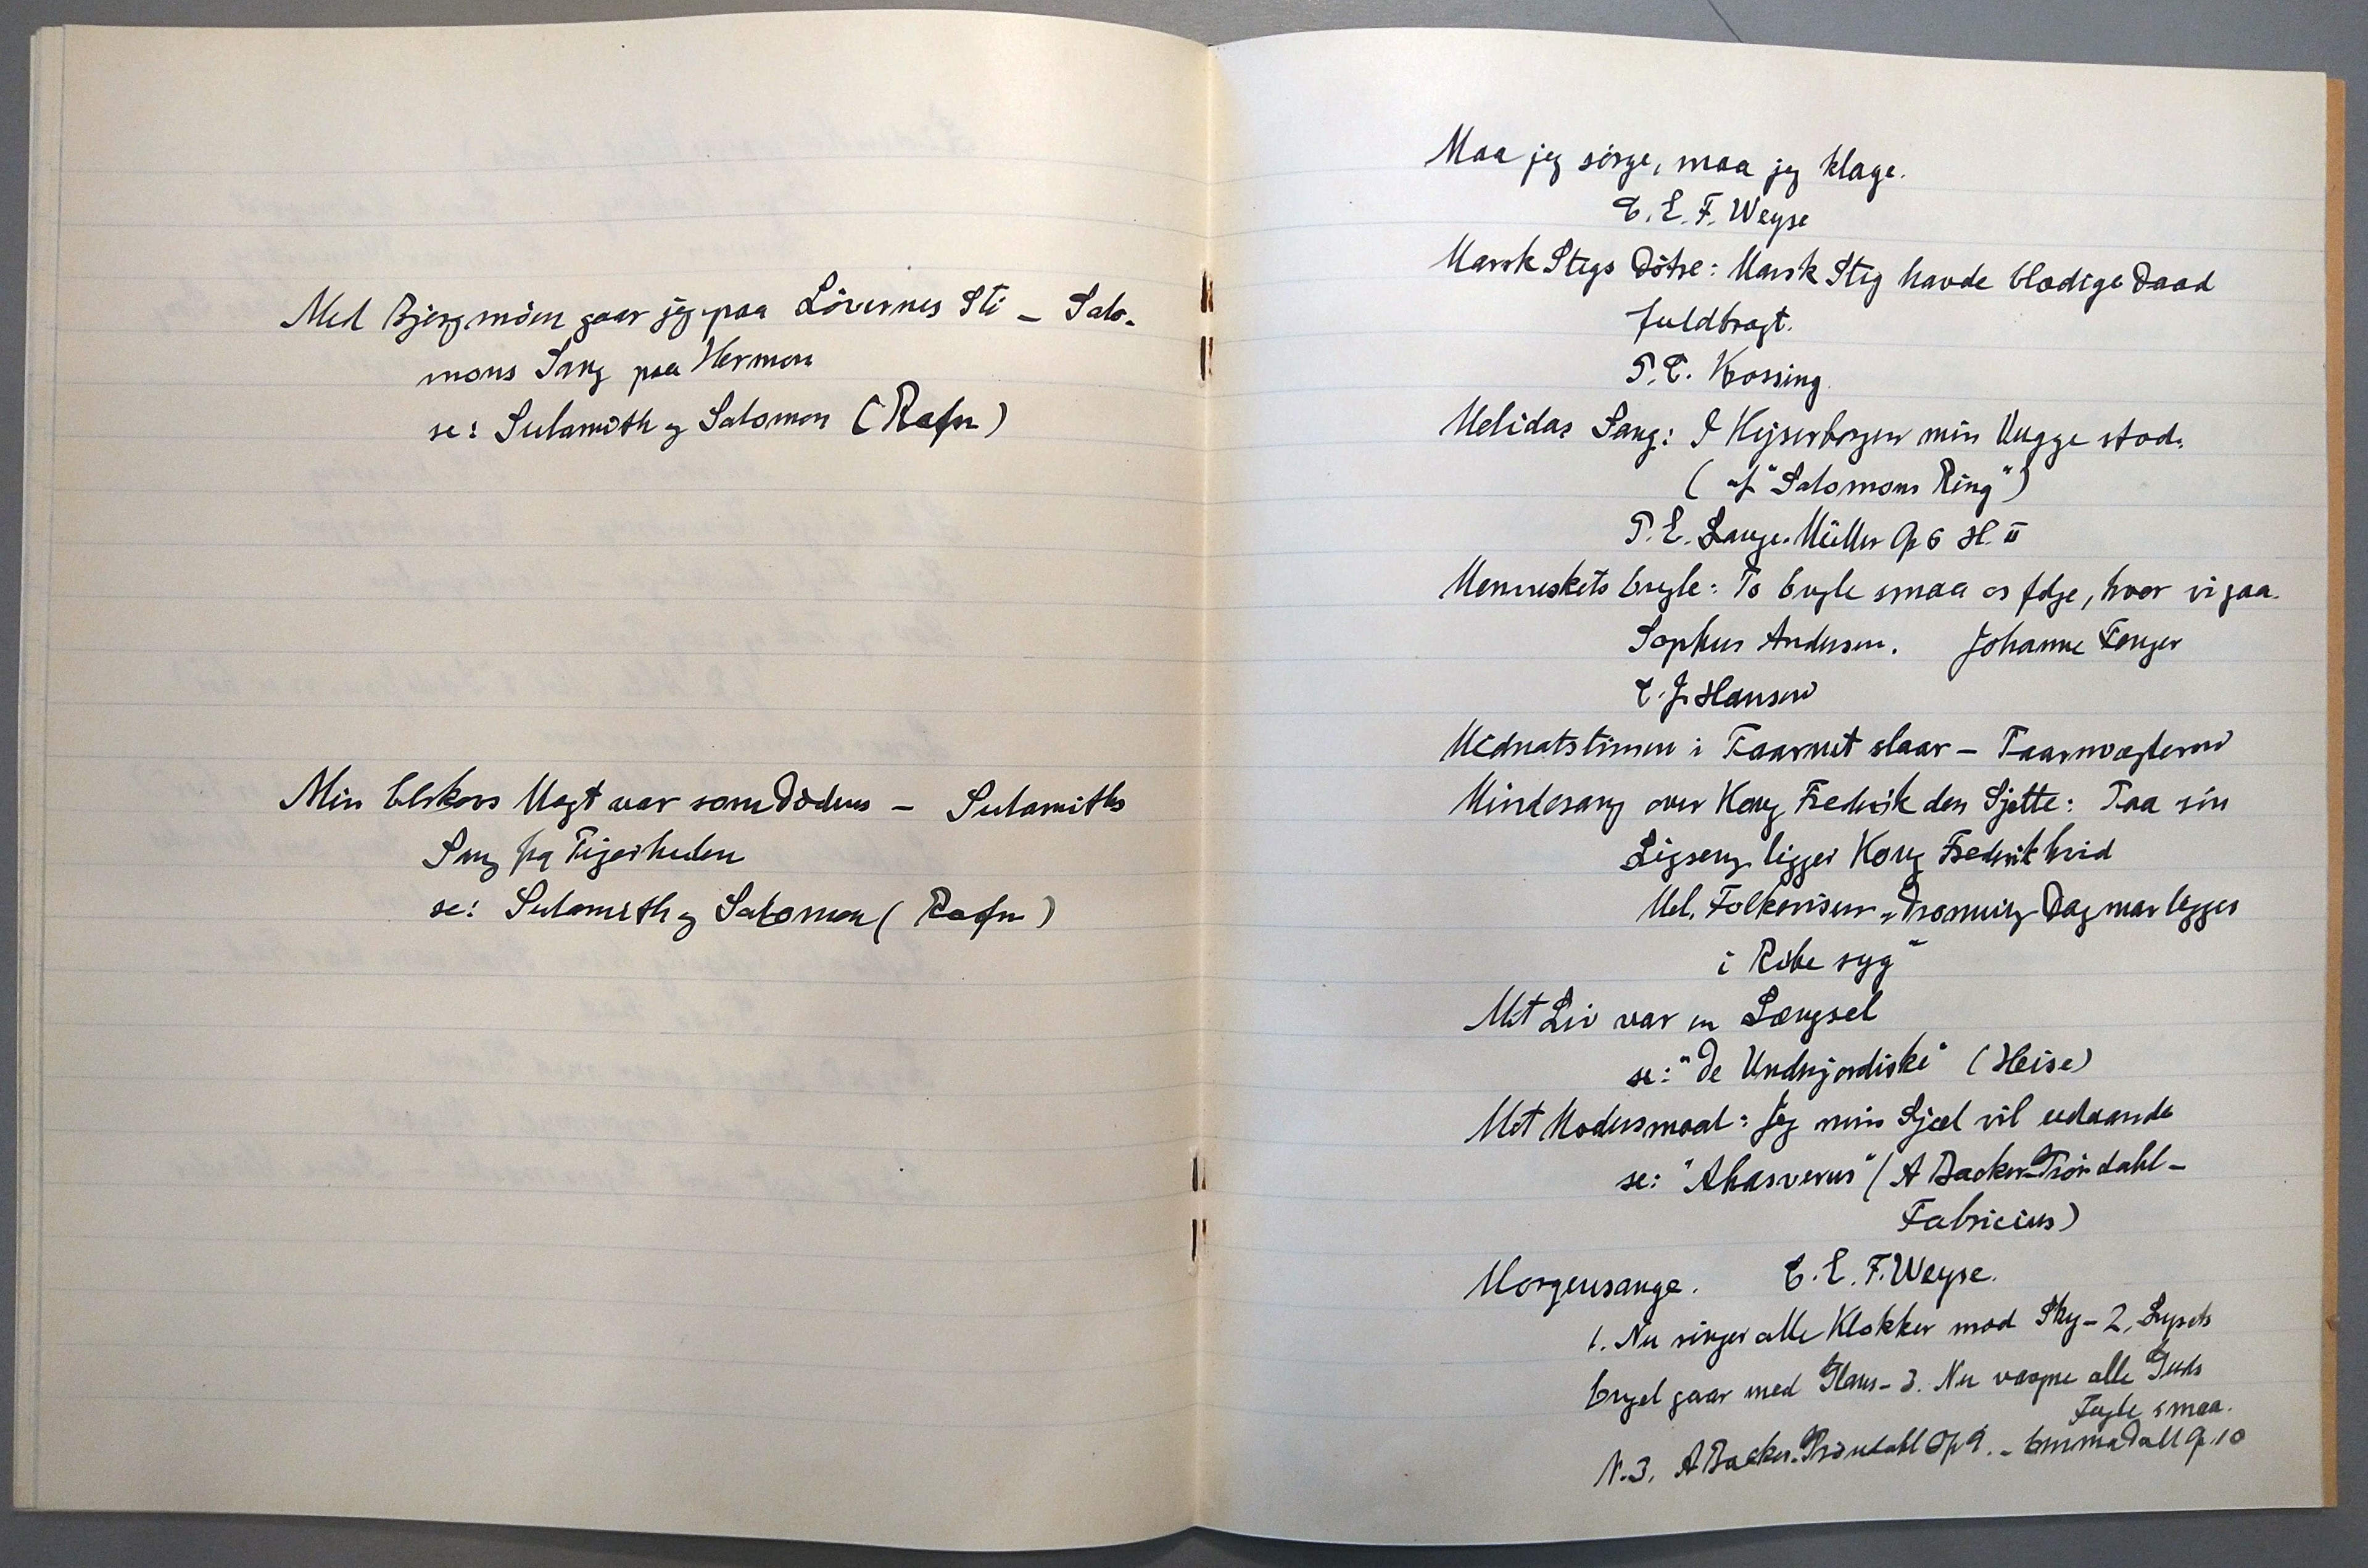 Med Bjergmöen gaar jeg paa Lövernes Sti – Salo-
mons Sang paa Hermon
se: Sulamith og Salomon (Rafn)
Min Elskovs Magt var som Dödens – Sulamiths
Sang fra Tigerheden
se: Sulamith og Salomon (Rafn)
Maa jeg sörge, maa jeg klage.
C. E. F. Weyse
Marsk Stigs Dötre: Marsk Stig havde blodige Daad
fuldbragt.
P. C. Krossing.
Melidas Sang: I Kejserborgen min Vugge stod.
(af "Salomons Ring")
P. E. Lange-Müller Op 6 H. II
Menneskets Engle: To Engle smaa os følge, hvor vi gaa.
Sophus Andersen. Johanne Fenger
C. J. Hansen
Midnatstimen i Taarnet slaar – Taarnvægteren
Mindesang over Kong Frederik den Sjette: Paa sin
Ligseng ligger Kong Frederik hvid
Mel. Folkevisen „Dronning Dagmar ligger
i Ribe syg"
Mit Liv var en Længsel
se: "De Underjordiske" (Heise)
Mit Modersmaal: Jeg min Sjæl vil udaande
se: "Ahasverus" (A Backer-Tröndahl –
Fabricius)
Morgensange. C. E. F. Weyse.
1. Nu ringer alle Klokker mod Sky – 2. Lysets
Engel gaar med Glans – 3. Nu vaagne alle Guds
Fugle smaa.
N. 3. A Backer-Gröndahl Op 9. – Emma Dall Op. 10